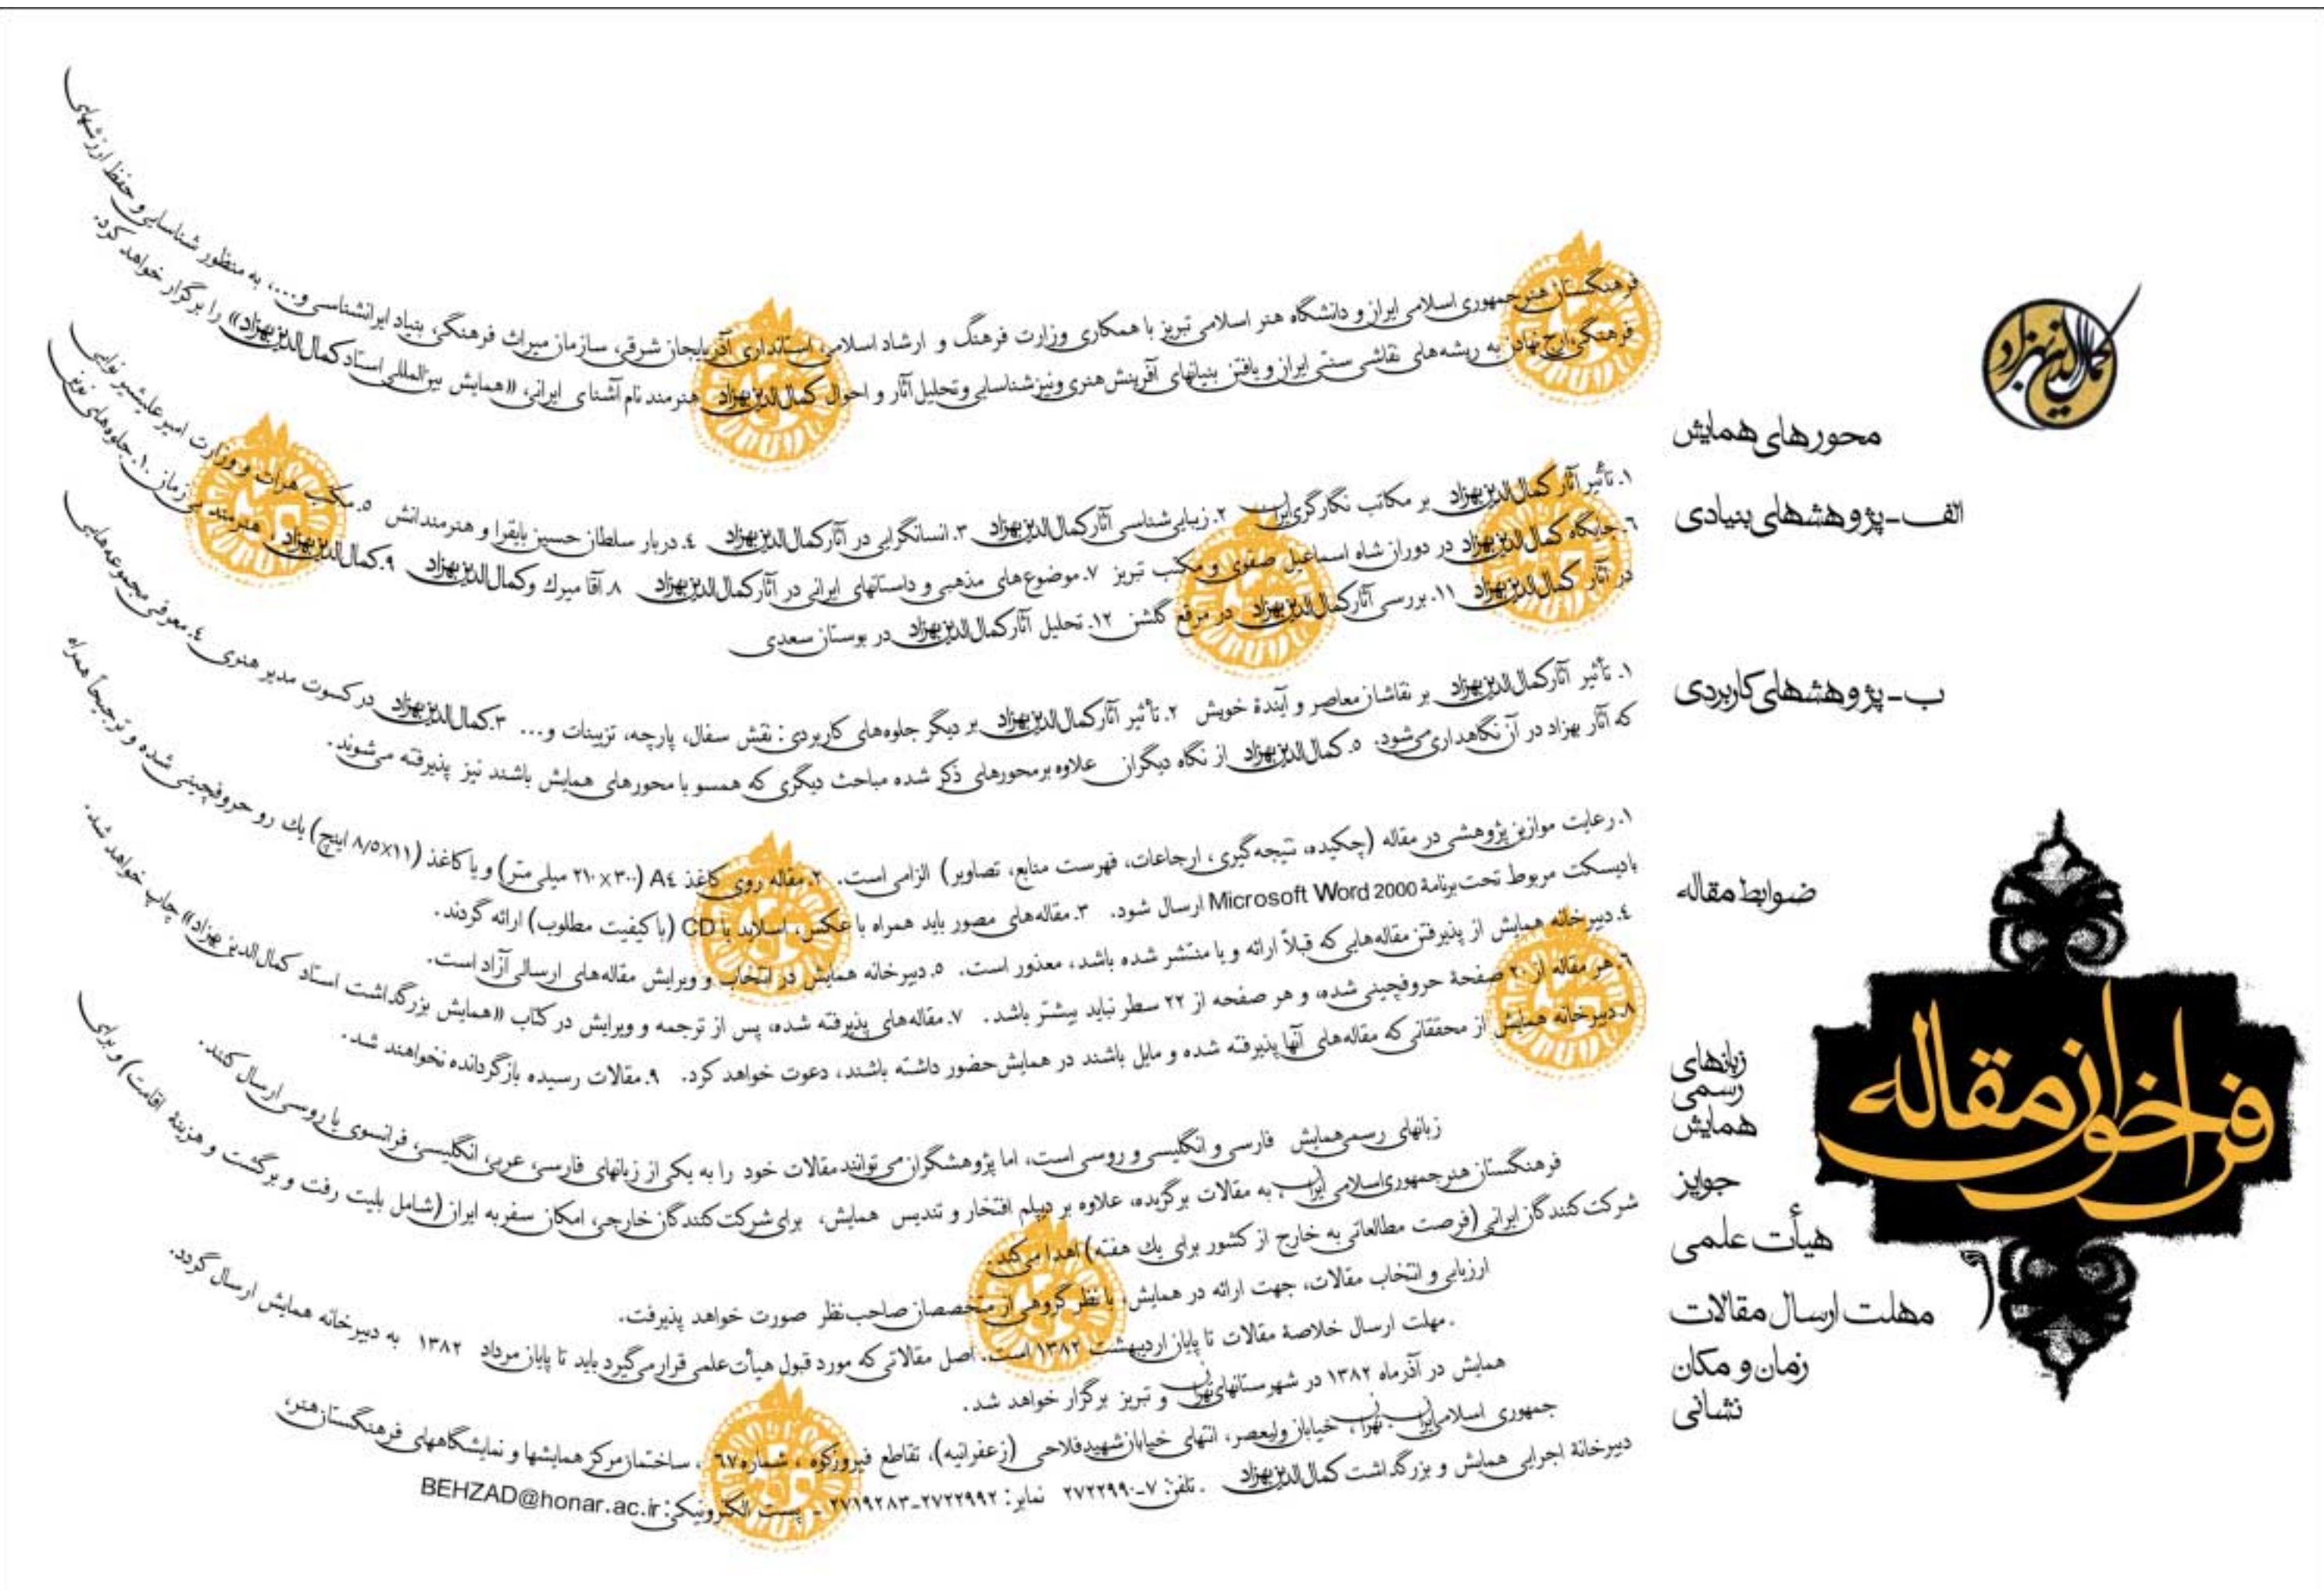 کمال‌الدین بهزاد
فرهنگستان هنر جمهوری اسلامی ایران و دانشگاه هنر اسلامی تبریز با همکاری وزارت فرهنگ و ارشاد اسلامی، استانداری آذربایجان شرقی، سازمان میراث فرهنگی، بنیاد ایرانشناسی و...، به منظور شناسایی و حفظ ارزشهای
فرهنگی، ارج نهادن به ریشه‌های نقاشی سنتی ایران و یافتن بنیانهای آفرینش هنری و نیز شناسایی و تحلیل آثار و احوال کمال‌الدین بهزاد هنرمند نام آشنای ایرانی، «همایش بین‌المللی استاد کمال‌الدین بهزاد» را برگزار خواهد کرد.
محورهای همایش
الف ـ پژوهشهای بنیادی
۱. تأثیر آثار کمال‌الدین بهزاد بر مکاتب نگارگری ایران ۲. زیبایی‌شناسی آثار کمال‌الدین بهزاد ۳. انسانگرایی در آثار کمال‌الدین بهزاد ۴. دربار سلطان حسین بایقرا و هنرمندانش ۵. مکتب هرات و وزارت امیر علیشیر نوایی
۶. جایگاه کمال‌الدین بهزاد در دوران شاه اسماعیل صفوی و مکتب تبریز ۷. موضوع‌های مذهبی و داستانهای ایرانی در آثار کمال‌الدین بهزاد ۸. آقا میرک و کمال‌الدین بهزاد ۹. کمال‌الدین بهزاد، هنرمند بی زمان ۱۰. جلوه‌های نوین
در آثار کمال‌الدین بهزاد ۱۱. بررسی آثار کمال‌الدین بهزاد در مرقع گلشن ۱۲. تحلیل آثار کمال‌الدین بهزاد در بوستان سعدی
ب ـ پژوهشهای کاربردی
۱. تأثیر آثار کمال‌الدین بهزاد بر نقاشان معاصر و آیندهٔ خویش ۲. تأثیر آثار کمال‌الدین بهزاد بر دیگر جلوه‌های کاربردی: نقش سفال، پارچه، تزیینات و... ۳. کمال‌الدین بهزاد در کسوت مدیر هنری ۴. معرفی مجموعه‌هایی
که آثار بهزاد در آن نگاهداری می‌شود. ۵. کمال‌الدین بهزاد از نگاه دیگران علاوه بر محورهای ذکر شده مباحث دیگری که همسو با محورهای همایش باشند نیز پذیرفته می‌شوند.
ضوابط مقاله
۱. رعایت موازین پژوهشی در مقاله (چکیده، نتیجه‌گیری، ارجاعات، فهرست منابع، تصاویر) الزامی است. ۲. مقاله روی کاغذ A۴ (۲۱۰×۳۰۰ میلی متر) و یا کاغذ (۸/۵×۱۱ اینچ) یک رو حروفچینی شده و ترجیحاً همراه
با دیسکت مربوط تحت برنامهٔ Microsoft Word 2000 ارسال شود. ۳. مقاله‌های مصور باید همراه با عکس، اسلاید یا CD (با کیفیت مطلوب) ارائه گردند.
۴. دبیرخانه همایش از پذیرفتن مقاله‌هایی که قبلاً ارائه و یا منتشر شده باشد، معذور است. ۵. دبیرخانه همایش در انتخاب و ویرایش مقاله‌های ارسالی آزاد است.
۶. هر مقاله از ۲۰ صفحهٔ حروفچینی شده، و هر صفحه از ۲۲ سطر نباید بیشتر باشد. ۷. مقاله‌های پذیرفته شده، پس از ترجمه و ویرایش در کتاب «همایش بزرگداشت استاد کمال‌الدین بهزاد» چاپ خواهد شد.
۸. دبیرخانه همایش از محققانی که مقاله‌های آنها پذیرفته شده و مایل باشند در همایش حضور داشته باشند، دعوت خواهد کرد. ۹. مقالات رسیده بازگردانده نخواهند شد.
فراخوان مقاله
زبانهای
رسمی
همایش
زبانهای رسمی همایش فارسی و انگلیسی و روسی است، اما پژوهشگران می‌توانند مقالات خود را به یکی از زبانهای فارسی، عربی، انگلیسی، فرانسوی یا روسی ارسال کنند.
جوایز
فرهنگستان هنر جمهوری اسلامی ایران، به مقالات برگزیده، علاوه بر دیپلم افتخار و تندیس همایش، برای شرکت کنندگان خارجی، امکان سفر به ایران (شامل بلیت رفت و برگشت و هزینهٔ اقامت) و برای
شرکت کنندگان ایرانی (فرصت مطالعاتی به خارج از کشور برای یک هفته) اهدا می‌کند.
هیأت علمی
ارزیابی و انتخاب مقالات، جهت ارائه در همایش، با نظر گروهی از متخصصان صاحب‌نظر صورت خواهد پذیرفت.
مهلت ارسال مقالات
. مهلت ارسال خلاصهٔ مقالات تا پایان اردیبهشت ۱۳۸۲ است. اصل مقالاتی که مورد قبول هیأت علمی قرار می‌گیرد باید تا پایان مرداد ۱۳۸۲ به دبیرخانه همایش ارسال گردد.
زمان و مکان
همایش در آذرماه ۱۳۸۲ در شهرستانهای تهران و تبریز برگزار خواهد شد.
نشانی
جمهوری اسلامی ایران، تهران، خیابان ولیعصر، انتهای خیابان شهید فلاحی (زعفرانیه)، تقاطع فیروزکوه، شماره ۶۷، ساختمان مرکز همایشها و نمایشگاههای فرهنگستان هنر،
دبیرخانهٔ اجرایی همایش و بزرگداشت کمال‌الدین بهزاد. تلفن: ۷ـ۲۷۲۲۹۹۰ نمابر: ۲۷۲۲۹۹۲ـ۲۷۱۹۲۸۳ ـ پست الکترونیکی: BEHZAD@honar.ac.ir